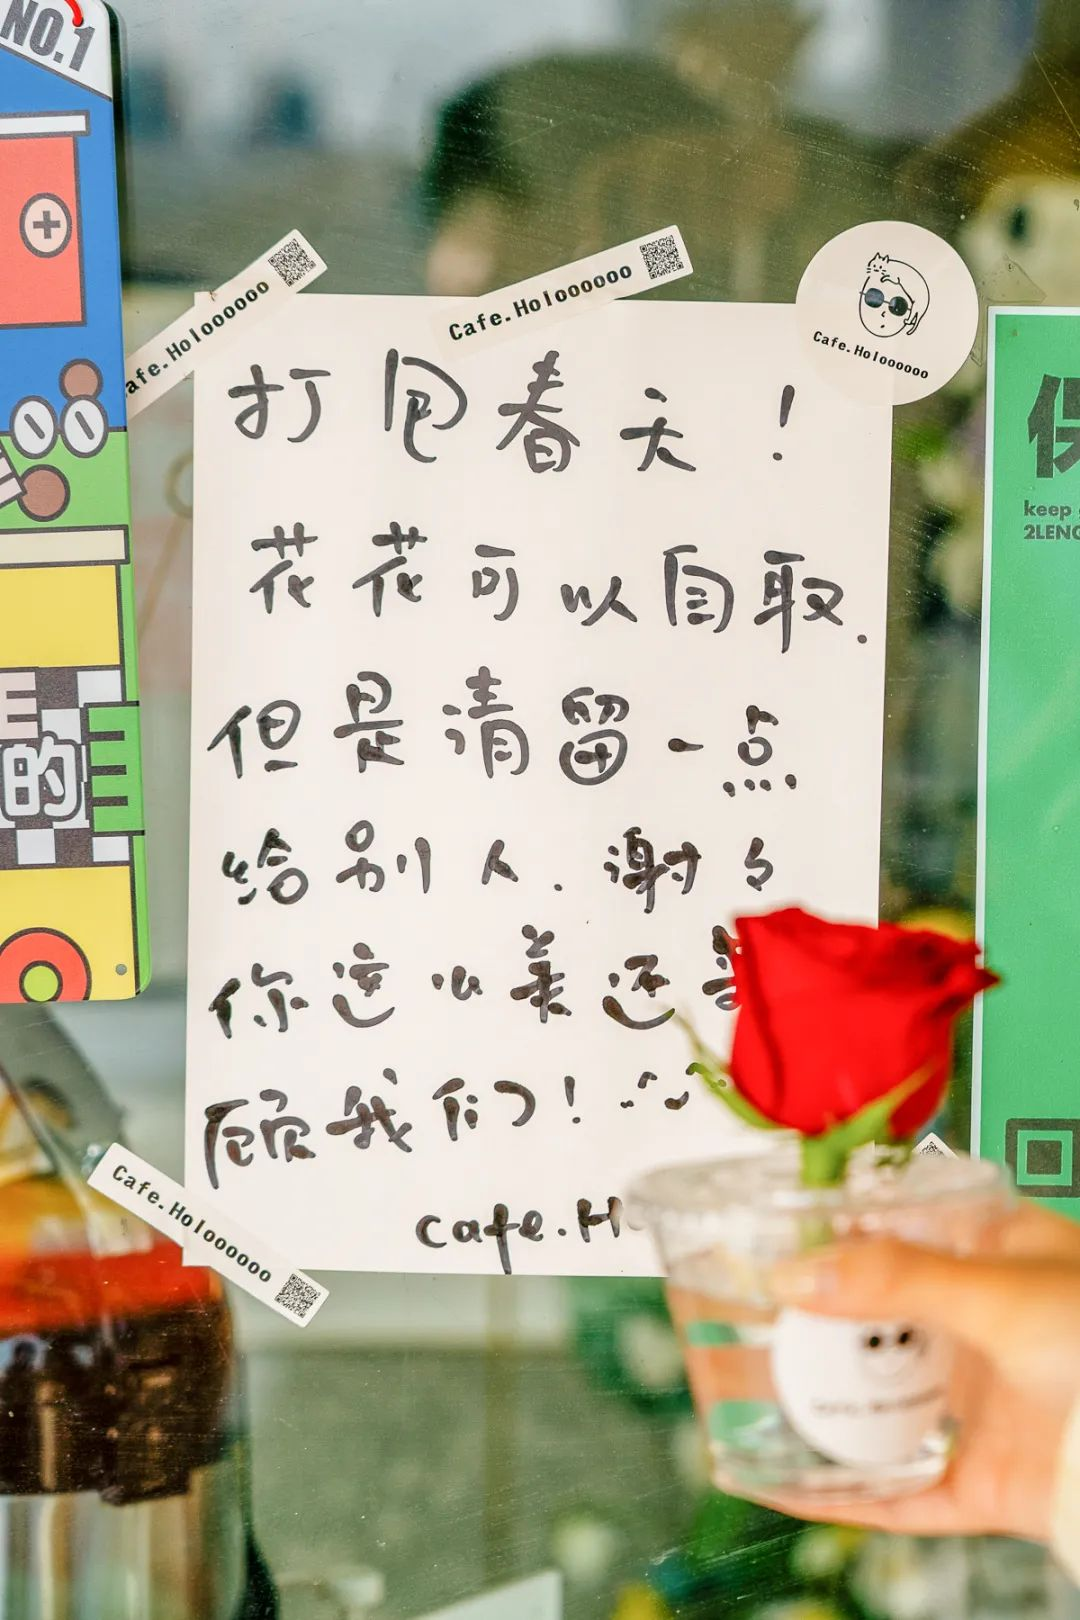 NO.1
Cafe.Holoooooo
Cafe.Holoooooo
Cafe.Holoooooo
打包春天！
花花可以自取.
但是清留一点
给别人.谢々
你这么美还
顾我们！^^
cafe.H
Cafe.Holoooooo
的
keep
2LENG